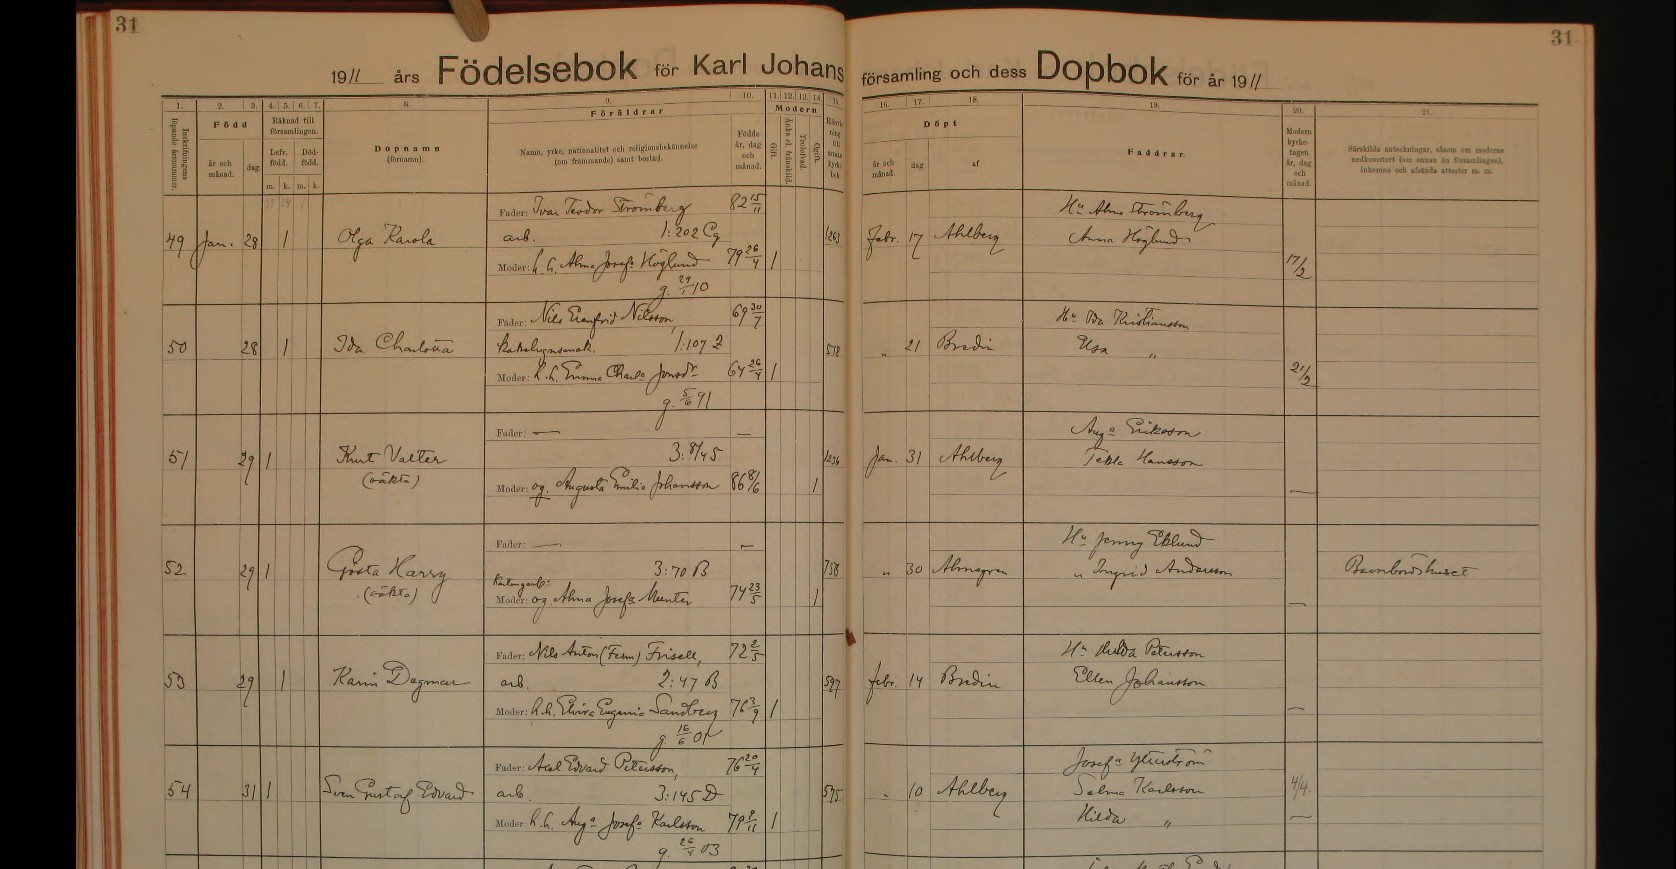 31
31
1911 års Födelsebok för Karl Johans församling och dess Dopbok för år 1911
1. 2. 3. 4. 5. 6. 7. 8. 9. 10. 11. 12. 13. 14. 15.
16. 17. 18. 19. 20. 21.
Inskrifningens löpande årsnummer.
Född
år och månad.
dag
Räknad till församlingen.
Lefv. född.
Död-född.
m. k. m. k.
Dopnamn
(förnamn).
Föräldrar
Namn, yrke, nationalitet och religionsbekännelse
(om främmande) samt bostad.
Födde år, dag och månad.
Modern
Gift.
Änka el. frånskild.
Trolofvad.
Ogift.
Döpt
år och månad.
dag
af
Faddrar.
Modern kyrko-tagen år, dag och månad.
Särskilda anteckningar, såsom om moderns
nedkomstort (om annan än församlingen),
inkomna och afsända attester m. m.
Fader: Ivar Teodor Strömberg 82 15/11
49 Jan. 28 1 Olga Karola arb. 1:202 Cg 1263
Moder: h. h. Alma Josefa Höglund 79 26/4 1
g. 29/1 10
Hu Alma Strömberg
febr. 17 Ahlberg Anna Höglund
17/2
Fader: Nils Ernfrid Nilsson, 69 30/7
50 28 1 Ida Charlotta 1:107 518
Moder: h. h. Emma Charla Jonsdr 64 26/4 1
g. 5/6 91
Hu Ida Kristiansson
„ 21 Bredin Elsa „
21/2
Fader: — —
51 29 1 Knut Valter 3: 8/45 1236
(oäkta)
Moder: og. Augusta Emilia Johansson 86 8/6 1
Auga Eriksson
Jan. 31 Ahlberg Tekla Hansson
—
Fader: — —
52 29 1 Gösta Harry 3:70 B 758
(oäkta)
Moder: og Alma Josefa Munter 74 23/5 1
Hu Jenny Eklund
„ 30 Almgren „ Ingrid Andersson Barnbördshuset
—
Fader: Nils Anton (Ferm) Frisell, 72 2/5
53 29 1 Karin Dagmar arb. 2:47 B 597
Moder: h. h. Elvira Eugenia Sandberg 76 3/9 1
g. 16/6 01
Hu Hulda Petersson
febr. 14 Bredin Ellen Johansson
—
Fader: Axel Edvard Petersson, 76 20/4
54 31 1 Sven Gustaf Edvard arb. 3:145 D 575
Moder: h. h. Auga Josefa Karlsson 79 9/11 1
g. 26/4 03
Josefa
„ 10 Ahlberg Selma Karlsson 4/4.
Hilda „ —